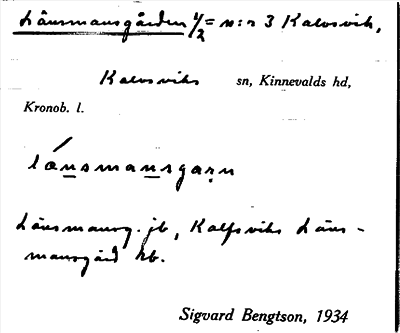 Länsmansgården 1/2 = n:r 3 Kalvsvik,
Kalvsviks sn, Kinnevalds hd,
Kronob. l.
lǽnsmansgaṛn
Länsmansg. jb, Kalfsviks Läns-
mansgård hb.
Sigvard Bengtson, 1934